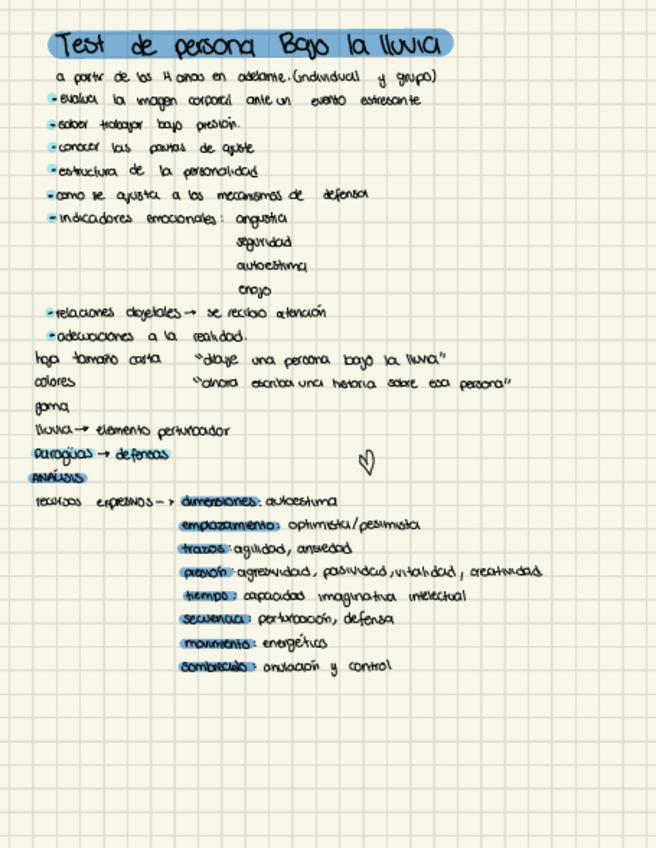 Test de persona Bajo la lluvia
a partir de los 4 años en adelante. (individual y grupo)
- evalua la imagen corporal ante un evento estresante
- saber trabajar bajo presión.
- conocer las pautas de ajuste
- estructura de la personalidad
- como se ajusta a los mecanismos de defensa
- indicadores emocionales: angustia
seguridad
autoestima
enojo
- relaciones objetales → se recibio atención
- adecuaciones a la realidad.
hoja tamaño carta "dibuje una persona bajo la lluvia"
colores "ahora escriba una historia sobre esa persona"
goma
lluvia → elemento perturbador
paragüas → defensas
ANÁLISIS
recursos expresivos → dimensiones: autoestima
emplazamiento: optimista/pesimista
trazos: agilidad, ansiedad
presión: agresividad, pasividad, vitalidad, creatividad
tiempo: capacidad imaginativa intelectual
secuencia: perturbación, defensa
movimiento: energético
sombreado: anulación y control